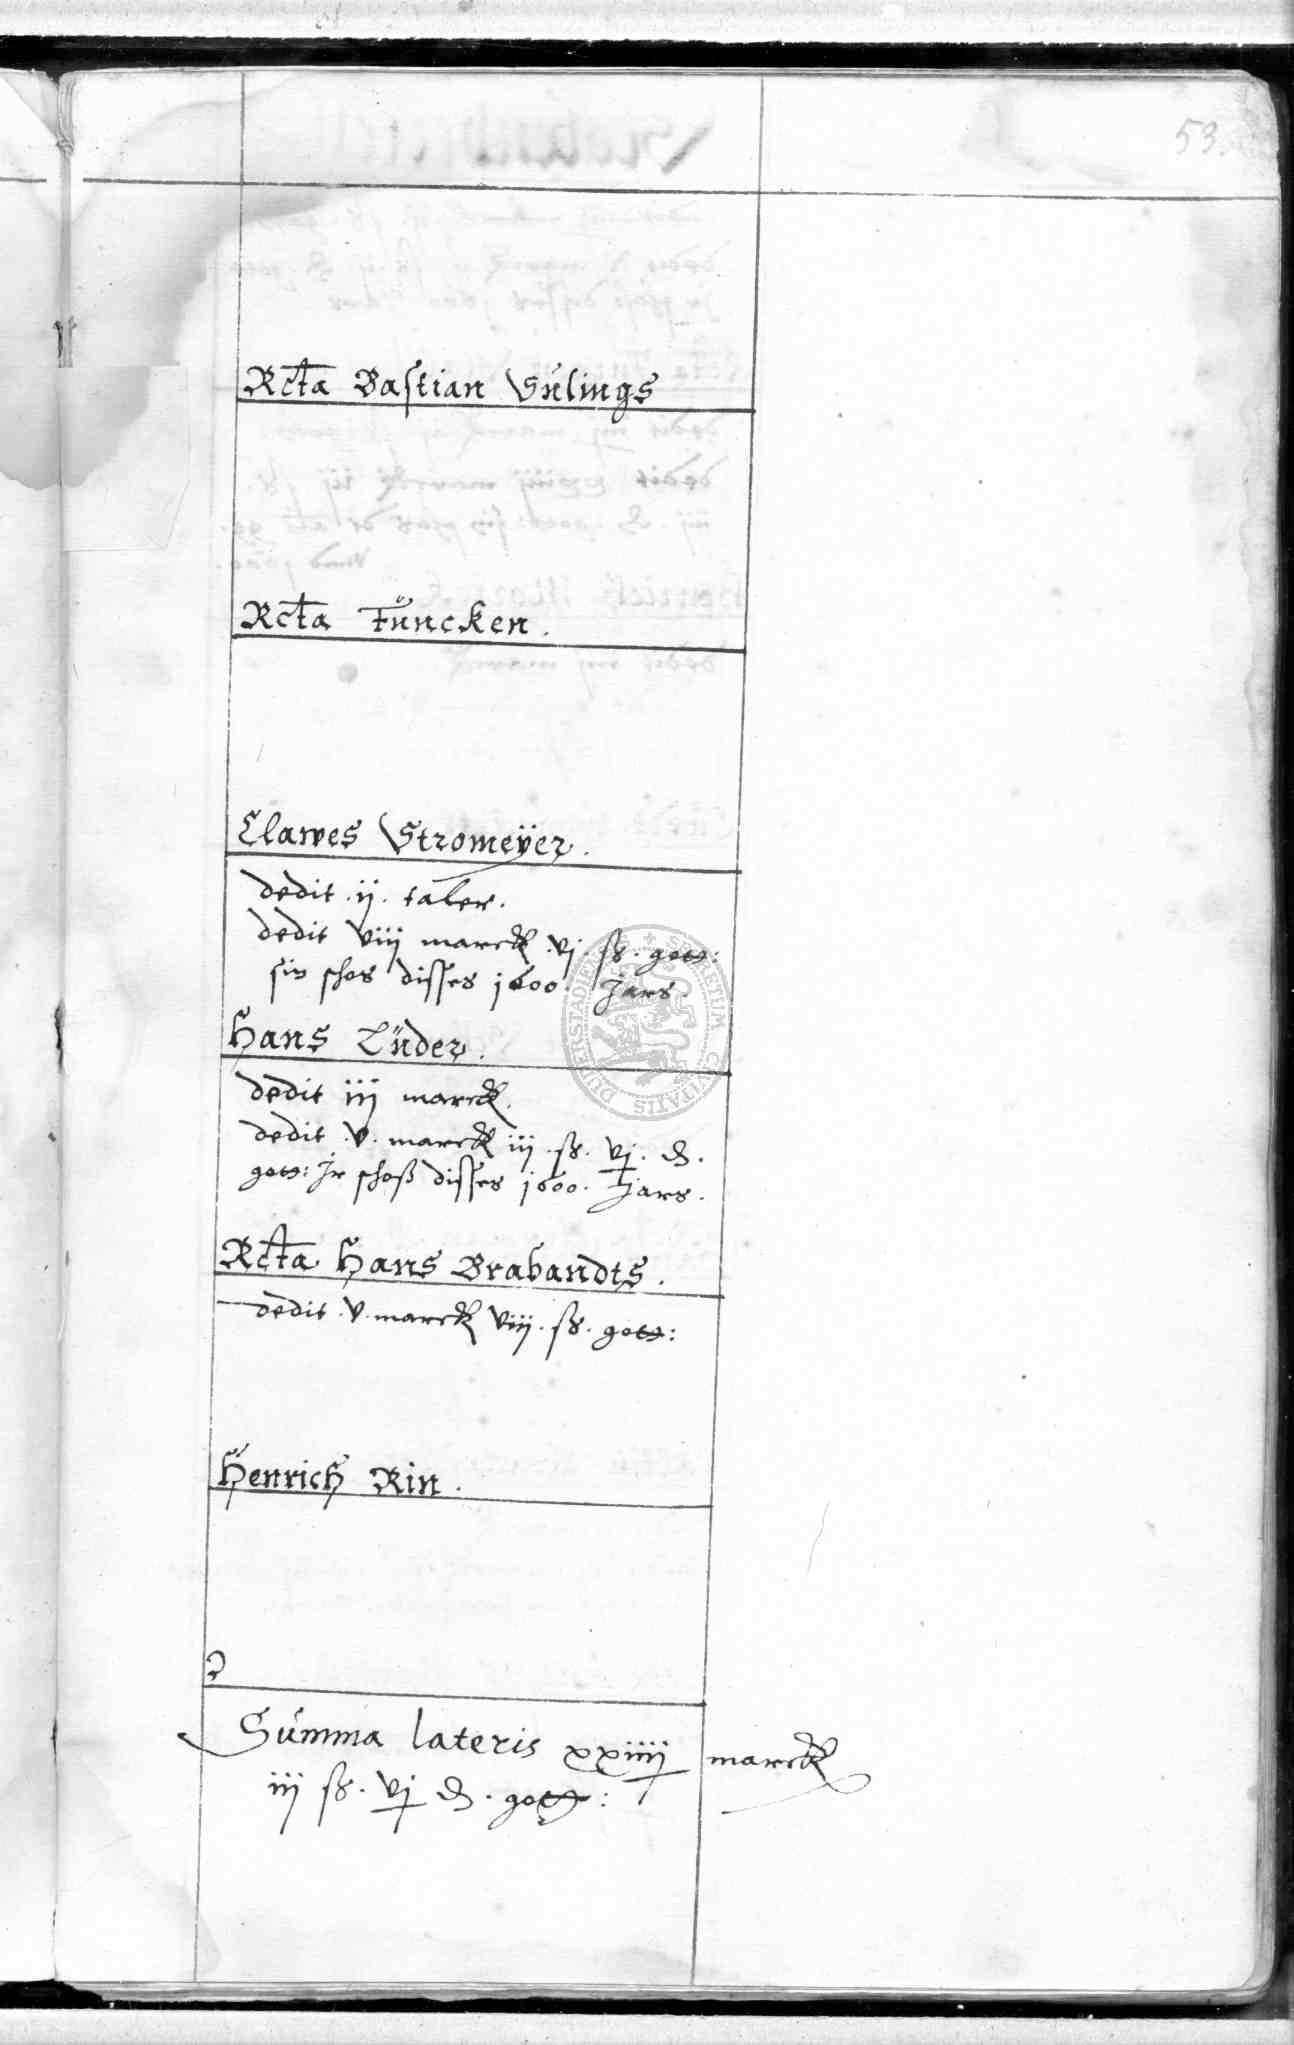 53.
Rcta Bastian Sülings
Rcta Füncken.
Clawes Stromeÿer.
dedit .ij. taler.
dedit viij marck .vj. ß. gott:
sin schos disses 1600. Jars
Hans Lüder.
dedit iij marck.
dedit .v. marck iij .ß. vj. ₰.
gott: Jr schoß disses 1600. Jars.
Rcta Hans Brabandts.
dedit .v. marck viij .ß. gott:
Henrich Rin.
Summa lateris xxiiij marck
iij ß. vj ₰. gott:
SECRETUM CIVITATIS DUDERSTADIENSIS